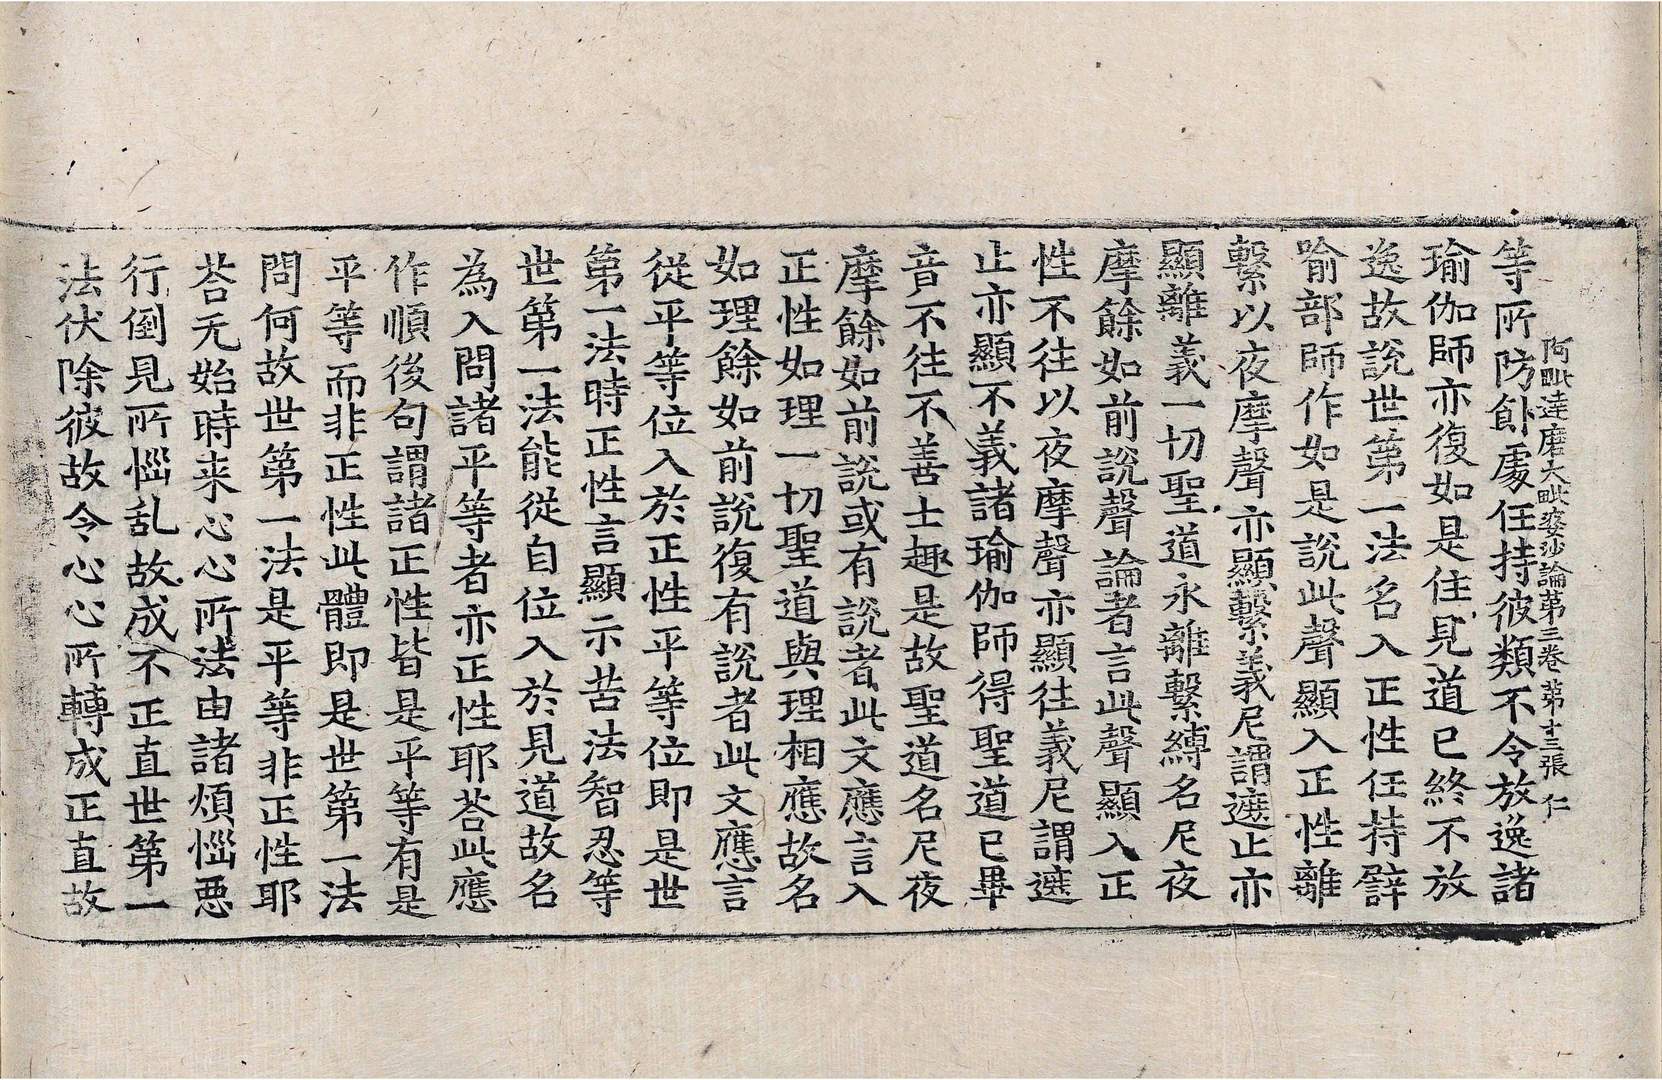 阿毗達磨大毗婆沙論第三卷 第十三張 仁
等所防卹處任持彼類不令放逸諸
瑜伽師亦復如是住見道已終不放
逸故說世第一法名入正性任持譬
喻部師作如是說此聲顯入正性離
繫以夜摩聲亦顯繫義尼謂遮止亦
顯離義一切聖道永離繫縛名尼夜
摩餘如前說聲論者言此聲顯入正
性不往以夜摩聲亦顯往義尼謂遮
止亦顯不義諸瑜伽師得聖道已畢
竟不往不善士趣是故聖道名尼夜
摩餘如前說或有說者此文應言入
正性如理一切聖道與理相應故名
如理餘如前說復有說者此文應言
從平等位入於正性平等位即是世
第一法時正性言顯示苦法智忍等
世第一法能從自位入於見道故名
為入問諸平等者亦正性耶荅此應
作順後句謂諸正性皆是平等有是
平等而非正性此體即是世第一法
問何故世第一法是平等非正性耶
荅无始時来心心所法由諸煩惱惡
行倒見所惱乱故成不正直世第一
法伏除彼故令心心所轉成正直故